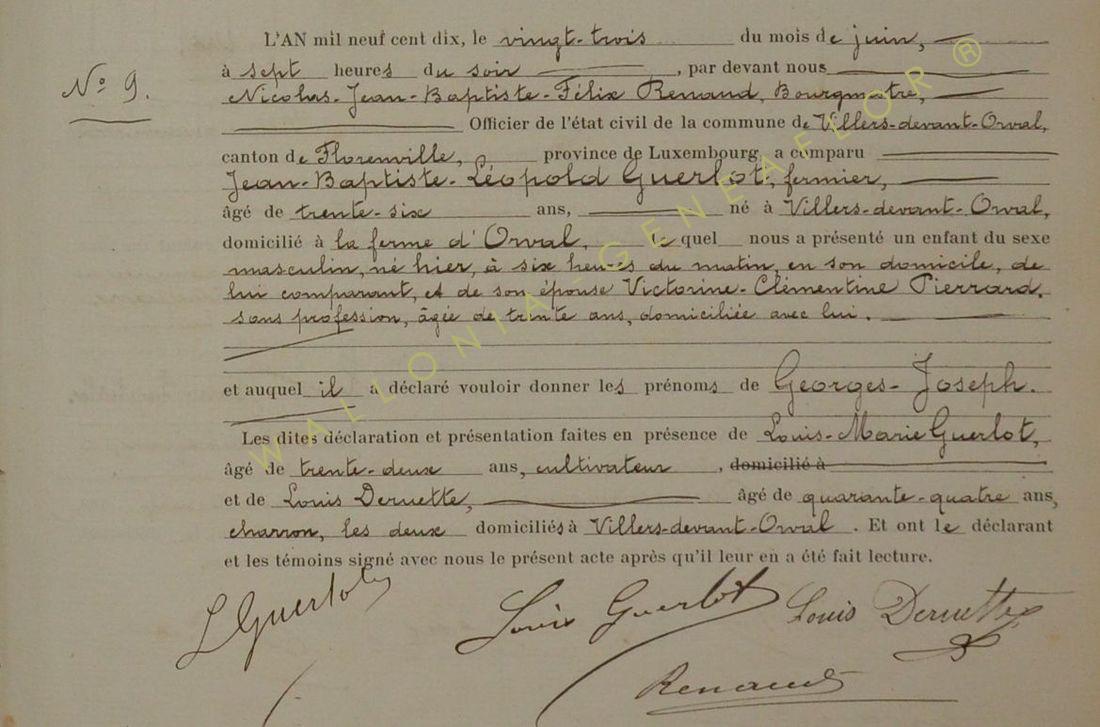 L'AN mil neuf cent dix, le vingt-trois du mois de juin,
N° 9.
à sept heures du soir, par devant nous
Nicolas-Jean-Baptiste-Félix Renaud, Bourgmestre,
Officier de l'état civil de la commune de Villers-devant-Orval,
canton de Florenville, province de Luxembourg, a comparu
Jean-Baptiste-Léopold Guerlot, fermier,
âgé de trente-six ans, né à Villers-devant-Orval,
domicilié à la ferme d'Orval, le quel nous a présenté un enfant du sexe
masculin, né hier, à six heures du matin, en son domicile, de
lui comparant, et de son épouse Victorine-Clémentine Pierrard,
sans profession, âgée de trente ans, domiciliée avec lui.
et auquel il a déclaré vouloir donner les prénoms de Georges-Joseph.
Les dites déclaration et présentation faites en présence de Louis-Marie Guerlot,
âgé de trente-deux ans, cultivateur, domicilié à
et de Louis Deruette, âgé de quarante-quatre ans,
charron, les deux domiciliés à Villers-devant-Orval. Et ont le déclarant
et les témoins signé avec nous le présent acte après qu'il leur en a été fait lecture.
L Guerlot Louis Guerlot Louis Deruette
Renaud
WALLONIA-GENEAFLOR ®